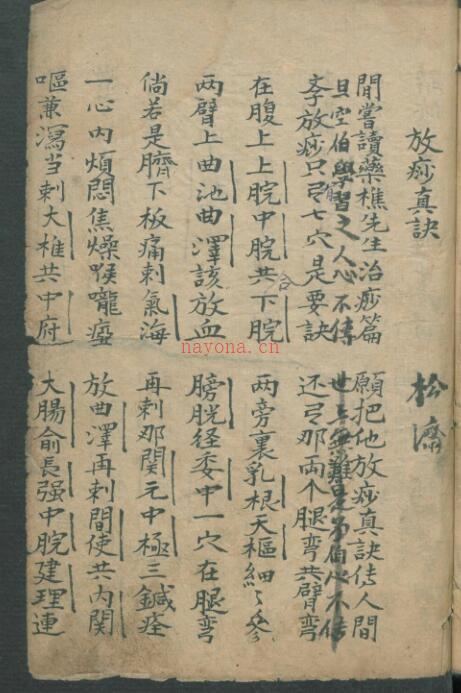 放痧真訣 松濤
閒嘗讀藥樵先生治痧篇 願把他放痧真訣传人間
且空伯學習之人心不传 世上無難是不自心不传
孝放痧只弓七穴是要訣 还弓那兩个腿弯共臂弯
在腹上上脘中脘共下脘 两旁裏乳根天樞細细參
两臂上曲池曲澤該放血 膀胱经委中一穴在腿弯
倘若是臍下板痛刺氣海 再刺那関元中極三鍼痊
一心内煩悶焦燥喉嚨痙 放曲澤再刺間使共内関
嘔兼瀉当刺大椎共中府 大腸俞長强中脘建理連
合
nayona.cn